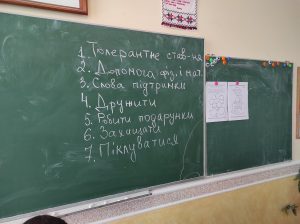 1. Толерантне став-ня
2. Допомога фіз. і мат.
3. Слова підтримки
4. Дружити
5. Робити подарунки
6. Захищати
7. Піклуватися